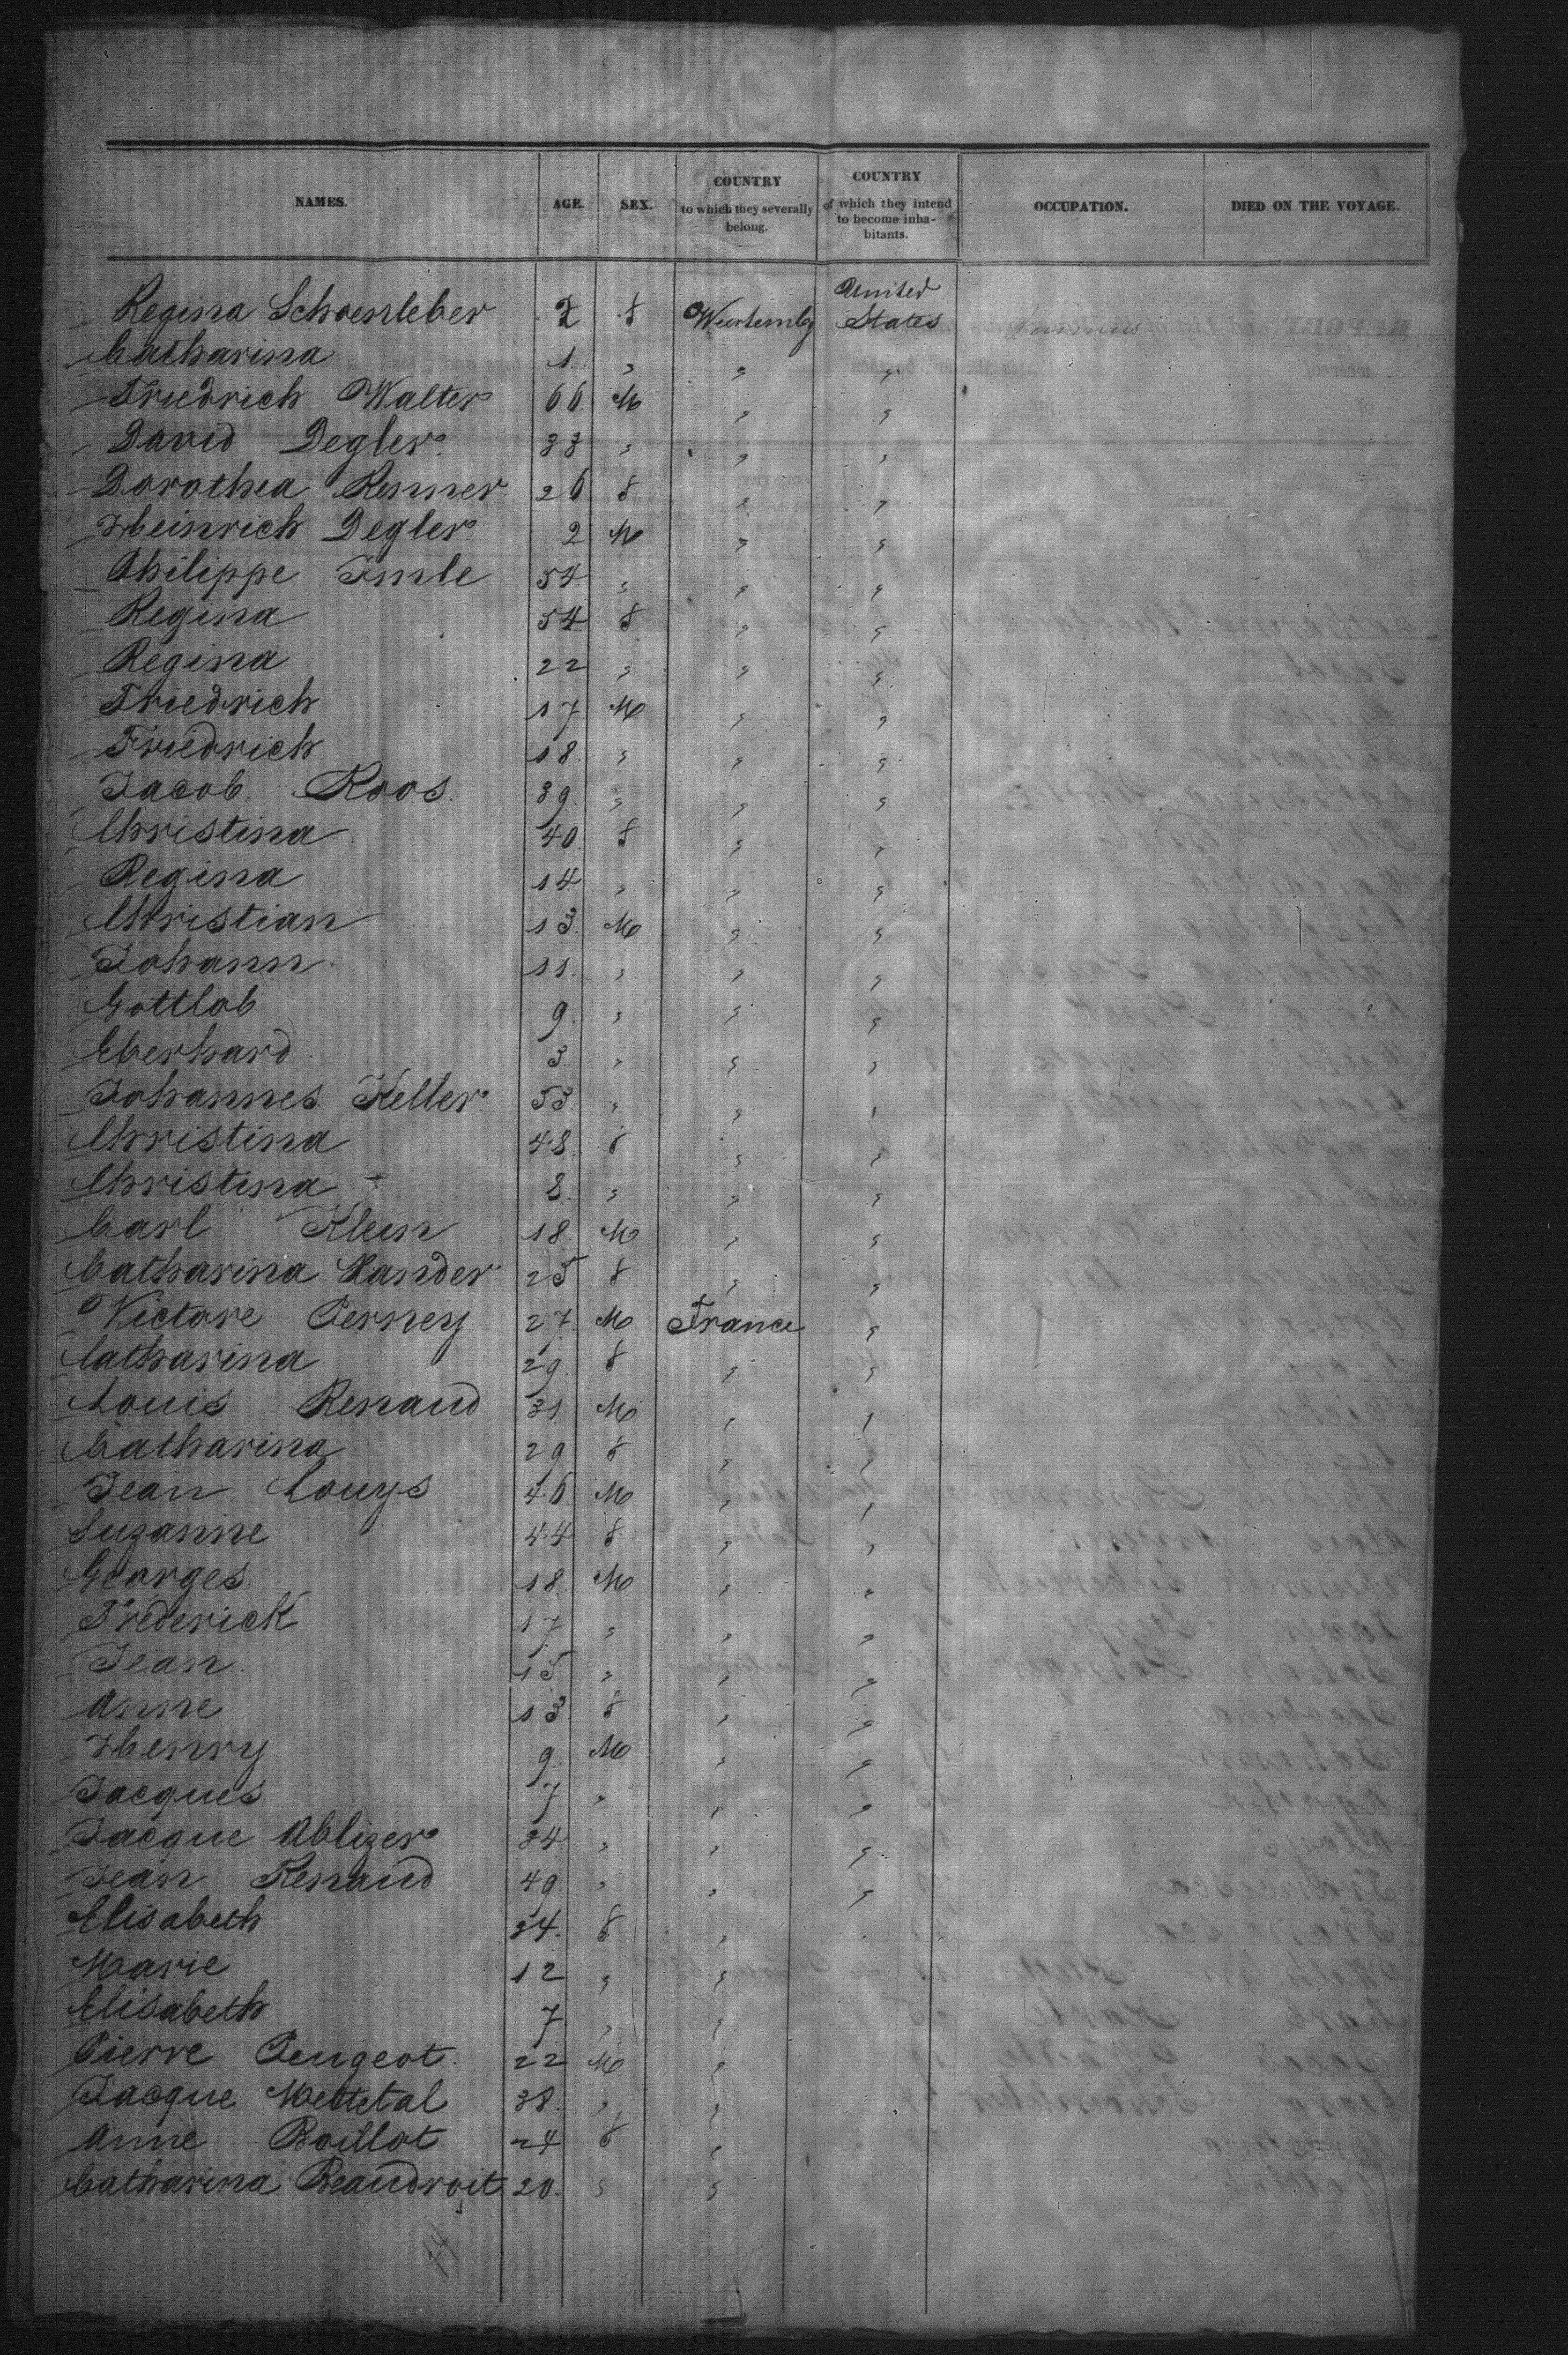 NAMES. AGE. SEX. COUNTRY to which they severally belong. COUNTRY of which they intend to become inhabitants. OCCUPATION. DIED ON THE VOYAGE.
Regina Schoenleber 2 f Wurtembg United States
Catharina 1 "
Friedrich Walter 66 M " "
David Degler 33 " " "
Dorothea Renner 26 f " "
Heinrich Degler 2 M " "
Philippe Imle 54 " " "
Regina 54 f " "
Regina 22 " " "
Friedrich 17 M " "
Friedrich 18 " " "
Jacob Roos 39 " " "
Christina 40 f " "
Regina 14 " " "
Christian 13 M " "
Johann 11 " " "
Gottlob 9 " " "
Eberhard 3 " " "
Johannes Keller 53 " " "
Christina 48 f " "
Christina 8 " " "
Carl Klein 18 M " "
Catharina Wander 25 f " "
Victore Perney 27 M France "
Catharina 29 f " "
Louis Renaud 31 M " "
Catharina 29 f " "
Jean Louys 46 M " "
Suzanne 44 f " "
Georges 18 M " "
Frederick 17 " " "
Jean 15 " " "
Anne 13 f " "
Henry 9 M " "
Jacques 7 " " "
Jacque Ablizer 34 " " "
Jean Renaud 49 " " "
Elisabeth 34 f "
Marie 12 " "
Elisabeth 7 " "
Pierre Peugeot 22 M "
Jacque Mettetal 38 " "
Anne Boillot 24 f "
Catharina Beaudroit 20 " "
44